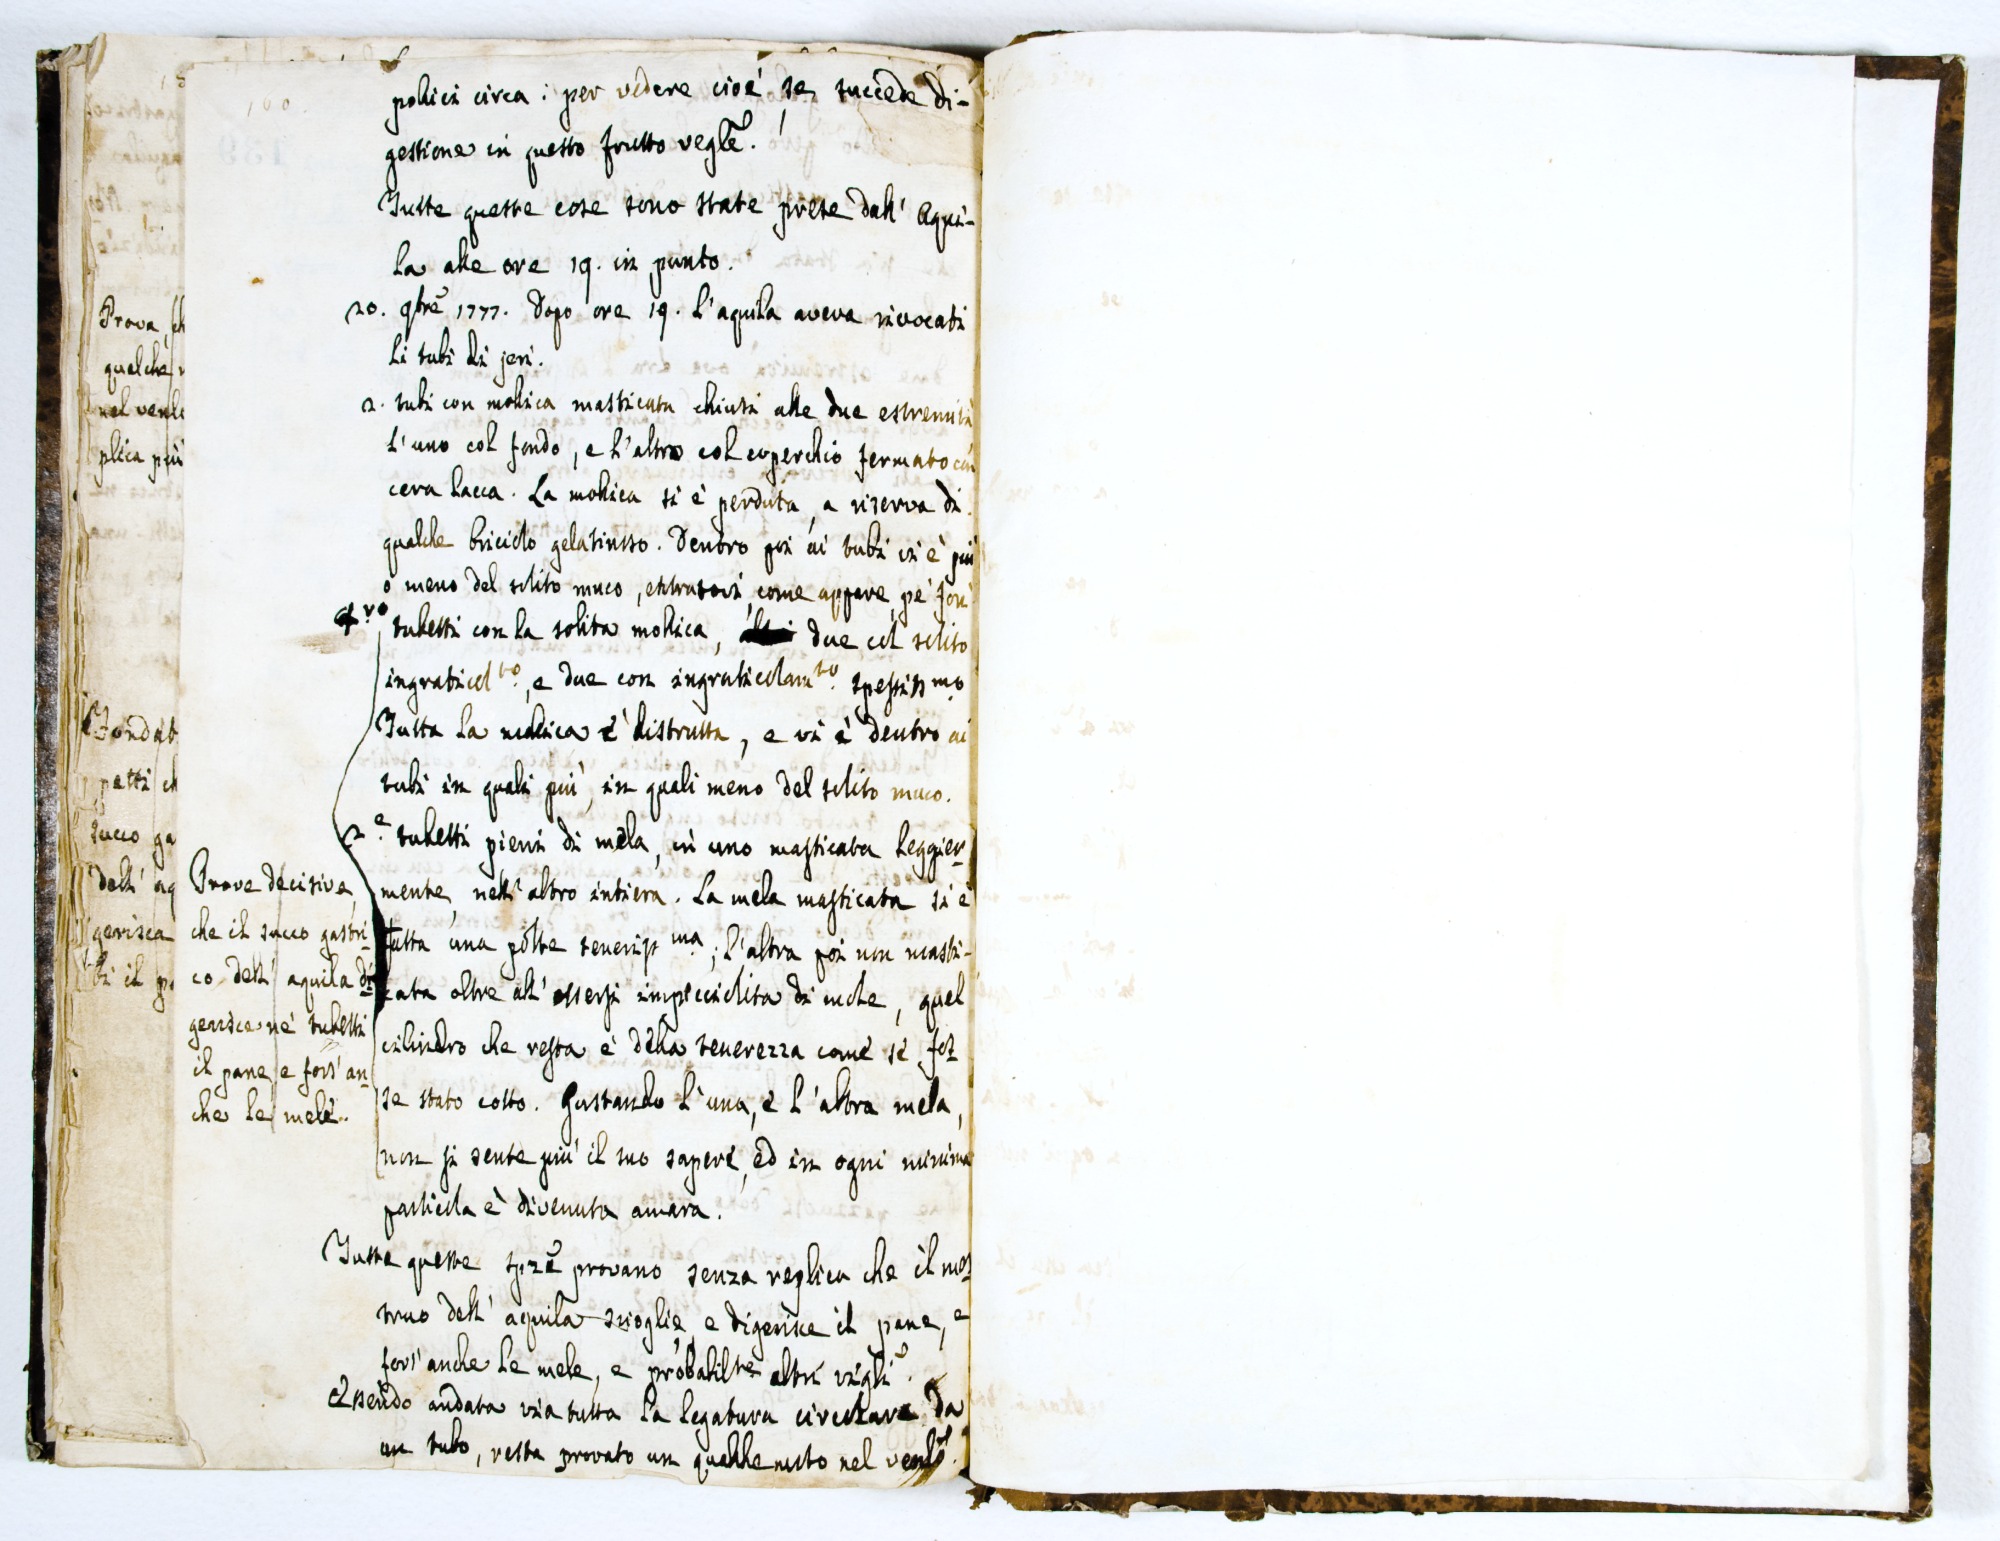 160.
pollici circa: per vedere cioè, se succede di-
gestione in questo frutto vegle.
Tutte queste cose sono state prese dall' Aqui-
la alle ore 19. in punto.
20. 9bre 1777. Dopo ore 19. l'aquila aveva rivocati
li tubi di jeri.
2. tubi con mollica masticata chiusi alle due estremità
l'uno col fondo, e l'altro col coperchio fermato con
cera lacca. La mollica si è perduta, a riserva di
qualche briciolo gelatinoso. Dentro poi ai tubi vi è più
o meno del solito muco, entratovi, come appare, pe' fori
4.ro tubetti con la solita mollica, due col solito
ingraticolto., e due con ingraticolamto. spessissmo
Tutta la mollica è distrutta, e vi è dentro ai
tubi in quali più, in quali meno del solito muco.
2.e tubetti pieni di mela, in uno masticata leggier-
mente, nell' altro intiera. La mela masticata si è
fatta una polte tenerissma; l'altra poi non masti-
cata oltre all' essersi impicciolita di mole, quel
cilindro che resta è della tenerezza come se fos-
se stato cotto. Gustando l'una, e l'altra mela,
non si sente più il suo sapore, ed in ogni minima
particola è divenuta amara.
Tutte queste spze provano senza replica che il mes-
truo dell' aquila scioglie, e digerisce il pane, e
fors' anche le mele, e probabilte altri vegli.
Essendo andata via tutta la legatura circolare da
un tubo, resta provato un qualche moto nel venle.
Prove decisive,
che il succo gastri-
co dell' aquila di-
gerisce ne' tubetti
il pane, e fors' an-
che le mele.
Prova, ch
qualche
nel venle
plica più
succo ga
dell' aq
gerisca